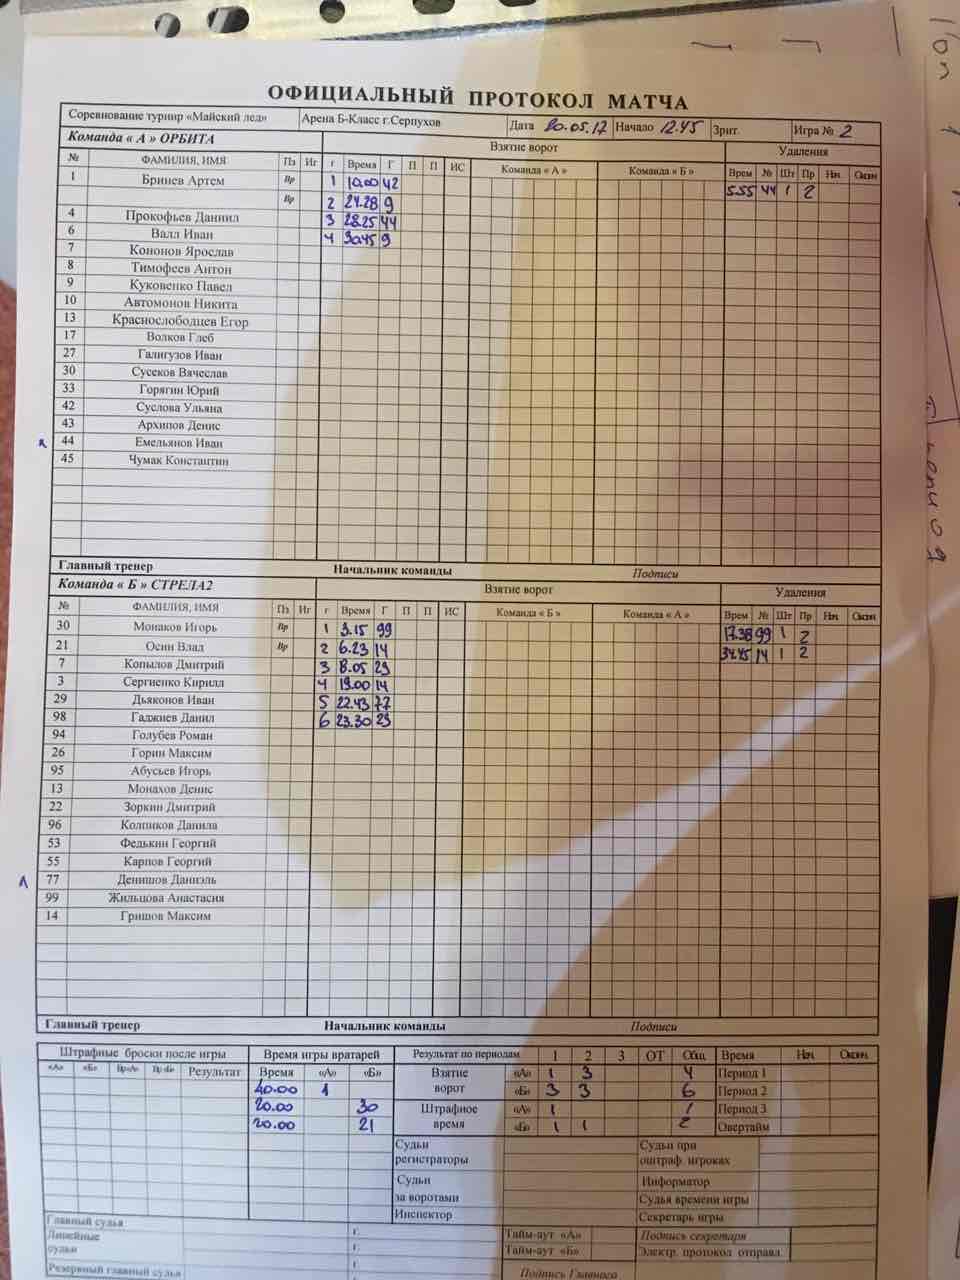 ОФИЦИАЛЬНЫЙ ПРОТОКОЛ МАТЧА
Соревнование турнир «Майский лед» Арена Б-Класс г.Серпухов Дата 20.05.17 Начало 12.45 Зрит. Игра № 2
Команда « А » ОРБИТА Взятие ворот Удаления
№ ФАМИЛИЯ, ИМЯ Пз Иг г Время Г П П ИС Команда « А » Команда « Б » Врем № Шт Пр Нач Окон
1 Бринев Артем Вр 1 10.00 42 5.55 44 1 2
Вр 2 27.28 9
4 Прокофьев Даниил 3 28.25 44
6 Валл Иван 4 30.45 9
7 Кононов Ярослав
8 Тимофеев Антон
9 Куковенко Павел
10 Автомонов Никита
13 Краснослободцев Егор
17 Волков Глеб
27 Галигузов Иван
30 Сусеков Вячеслав
33 Горягин Юрий
42 Суслова Ульяна
43 Архипов Денис
44 Емельянов Иван
45 Чумак Константин
Главный тренер Начальник команды Подписи
Команда « Б » СТРЕЛА2 Взятие ворот Удаления
№ ФАМИЛИЯ, ИМЯ Пз Иг г Время Г П П ИС Команда « Б » Команда « А » Врем № Шт Пр Нач Окон
30 Монаков Игорь Вр 1 3.15 99 17.38 99 1 2
21 Осин Влад Вр 2 6.23 14 37.45 14 1 2
7 Копылов Дмитрий 3 8.05 29
3 Сергиенко Кирилл 4 19.00 14
29 Дьяконов Иван 5 22.43 77
98 Гаджиев Данил 6 23.30 29
94 Голубев Роман
26 Горин Максим
95 Абусьев Игорь
13 Монахов Денис
22 Зоркин Дмитрий
96 Колпиков Данила
53 Федькин Георгий
55 Карпов Георгий
77 Денишов Даниэль
99 Жильцова Анастасия
14 Гришов Максим
Главный тренер Начальник команды Подписи
Штрафные броски после игры Время игры вратарей Результат по периодам 1 2 3 ОТ Общ Время Нач Окон
«А» «Б» Вр«А» Вр «Б» Результат Время «А» «Б» Взятие ворот «А» 1 3 4 Период 1
40.00 1 «Б» 3 3 6 Период 2
20.00 30 Штрафное время «А» 1 1 Период 3
20.00 21 «Б» 1 1 2 Овертайм
Судьи регистраторы Судьи при оштраф. игроках
Судьи за воротами Информатор
Судья времени игры
Инспектор Секретарь игры
Главный судья Тайм-аут «А» Подпись секретаря
Линейные судьи г. Тайм-аут «Б» Электр. протокол отправл.
Резервный главный судья г. Подпись Главного